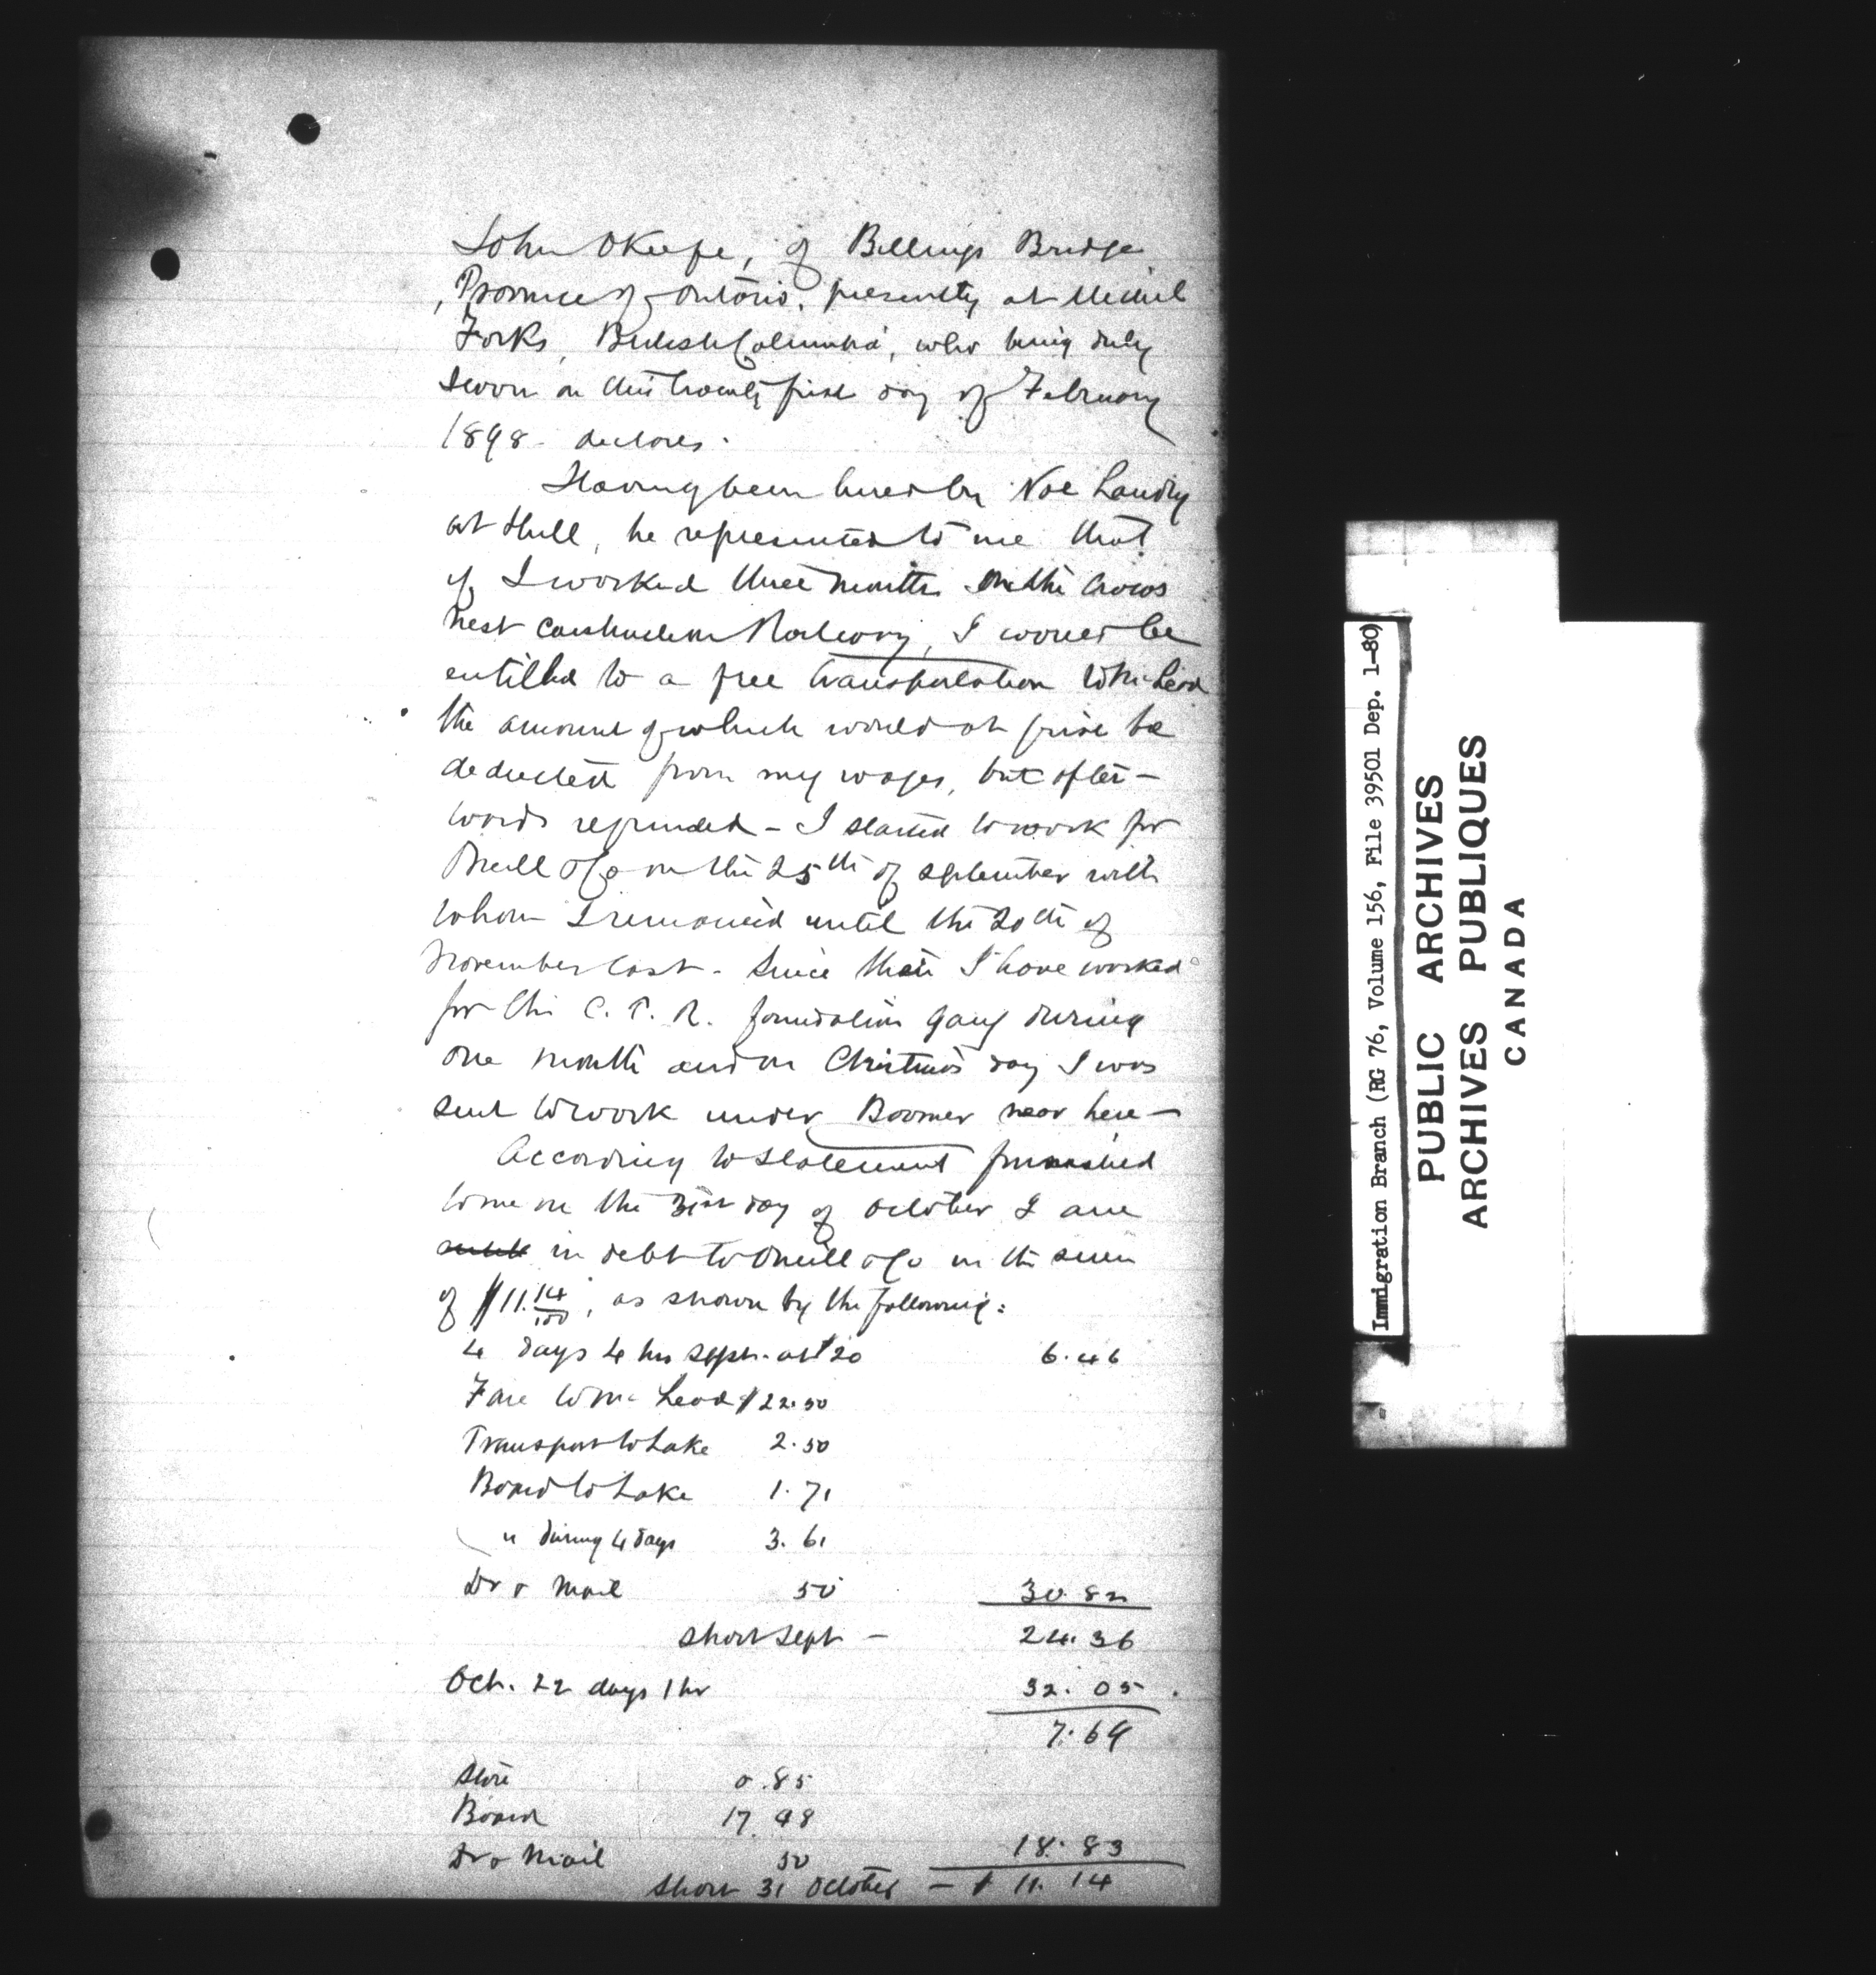 John OKeefe, of Billings Bridge
, Province of Ontario, presently at Michel
Forks, British Columbia, who being duly
sworn on this twenty first day of February
1898 - declares.
Having been hired by Noe Landry
at Hull, he represented to me that
if I worked three months on the Crows
nest construction Railway, I would be
entitled to a free transportation to McLeod
the amount of which would at first be
deducted from my wages, but after-
wards refunded - I started to work for
Oneill & Co on the 25th of September with
whom I remained until the 20th of
November last - Since then I have worked
for the C. P. R. foundation gang during
one month and on Christmas day I was
sent to work under Boomer near here -
According to statement furnished
to me on the 31st day of October I am
in debt to Oneill & Co in the sum
of $11.14/100, as shown by the following:
4 days 4 hrs Sept. at $20 6.46
Fare to McLeod $22.50
Transport to Lake 2.50
Board to Lake 1.71
" during 4 days 3.61
Dr & Mail 50 30.82
short Sept - 24.36
Oct. 22 days 1 hr 32.05.
7.69
Store 0.85
Board 17.48
Dr & Mail 50 18.83
Short 31 October - $ 11.14
Immigration Branch (RG 76, Volume 156, File 39501 Dep. 1-80)
PUBLIC ARCHIVES
ARCHIVES PUBLIQUES
CANADA